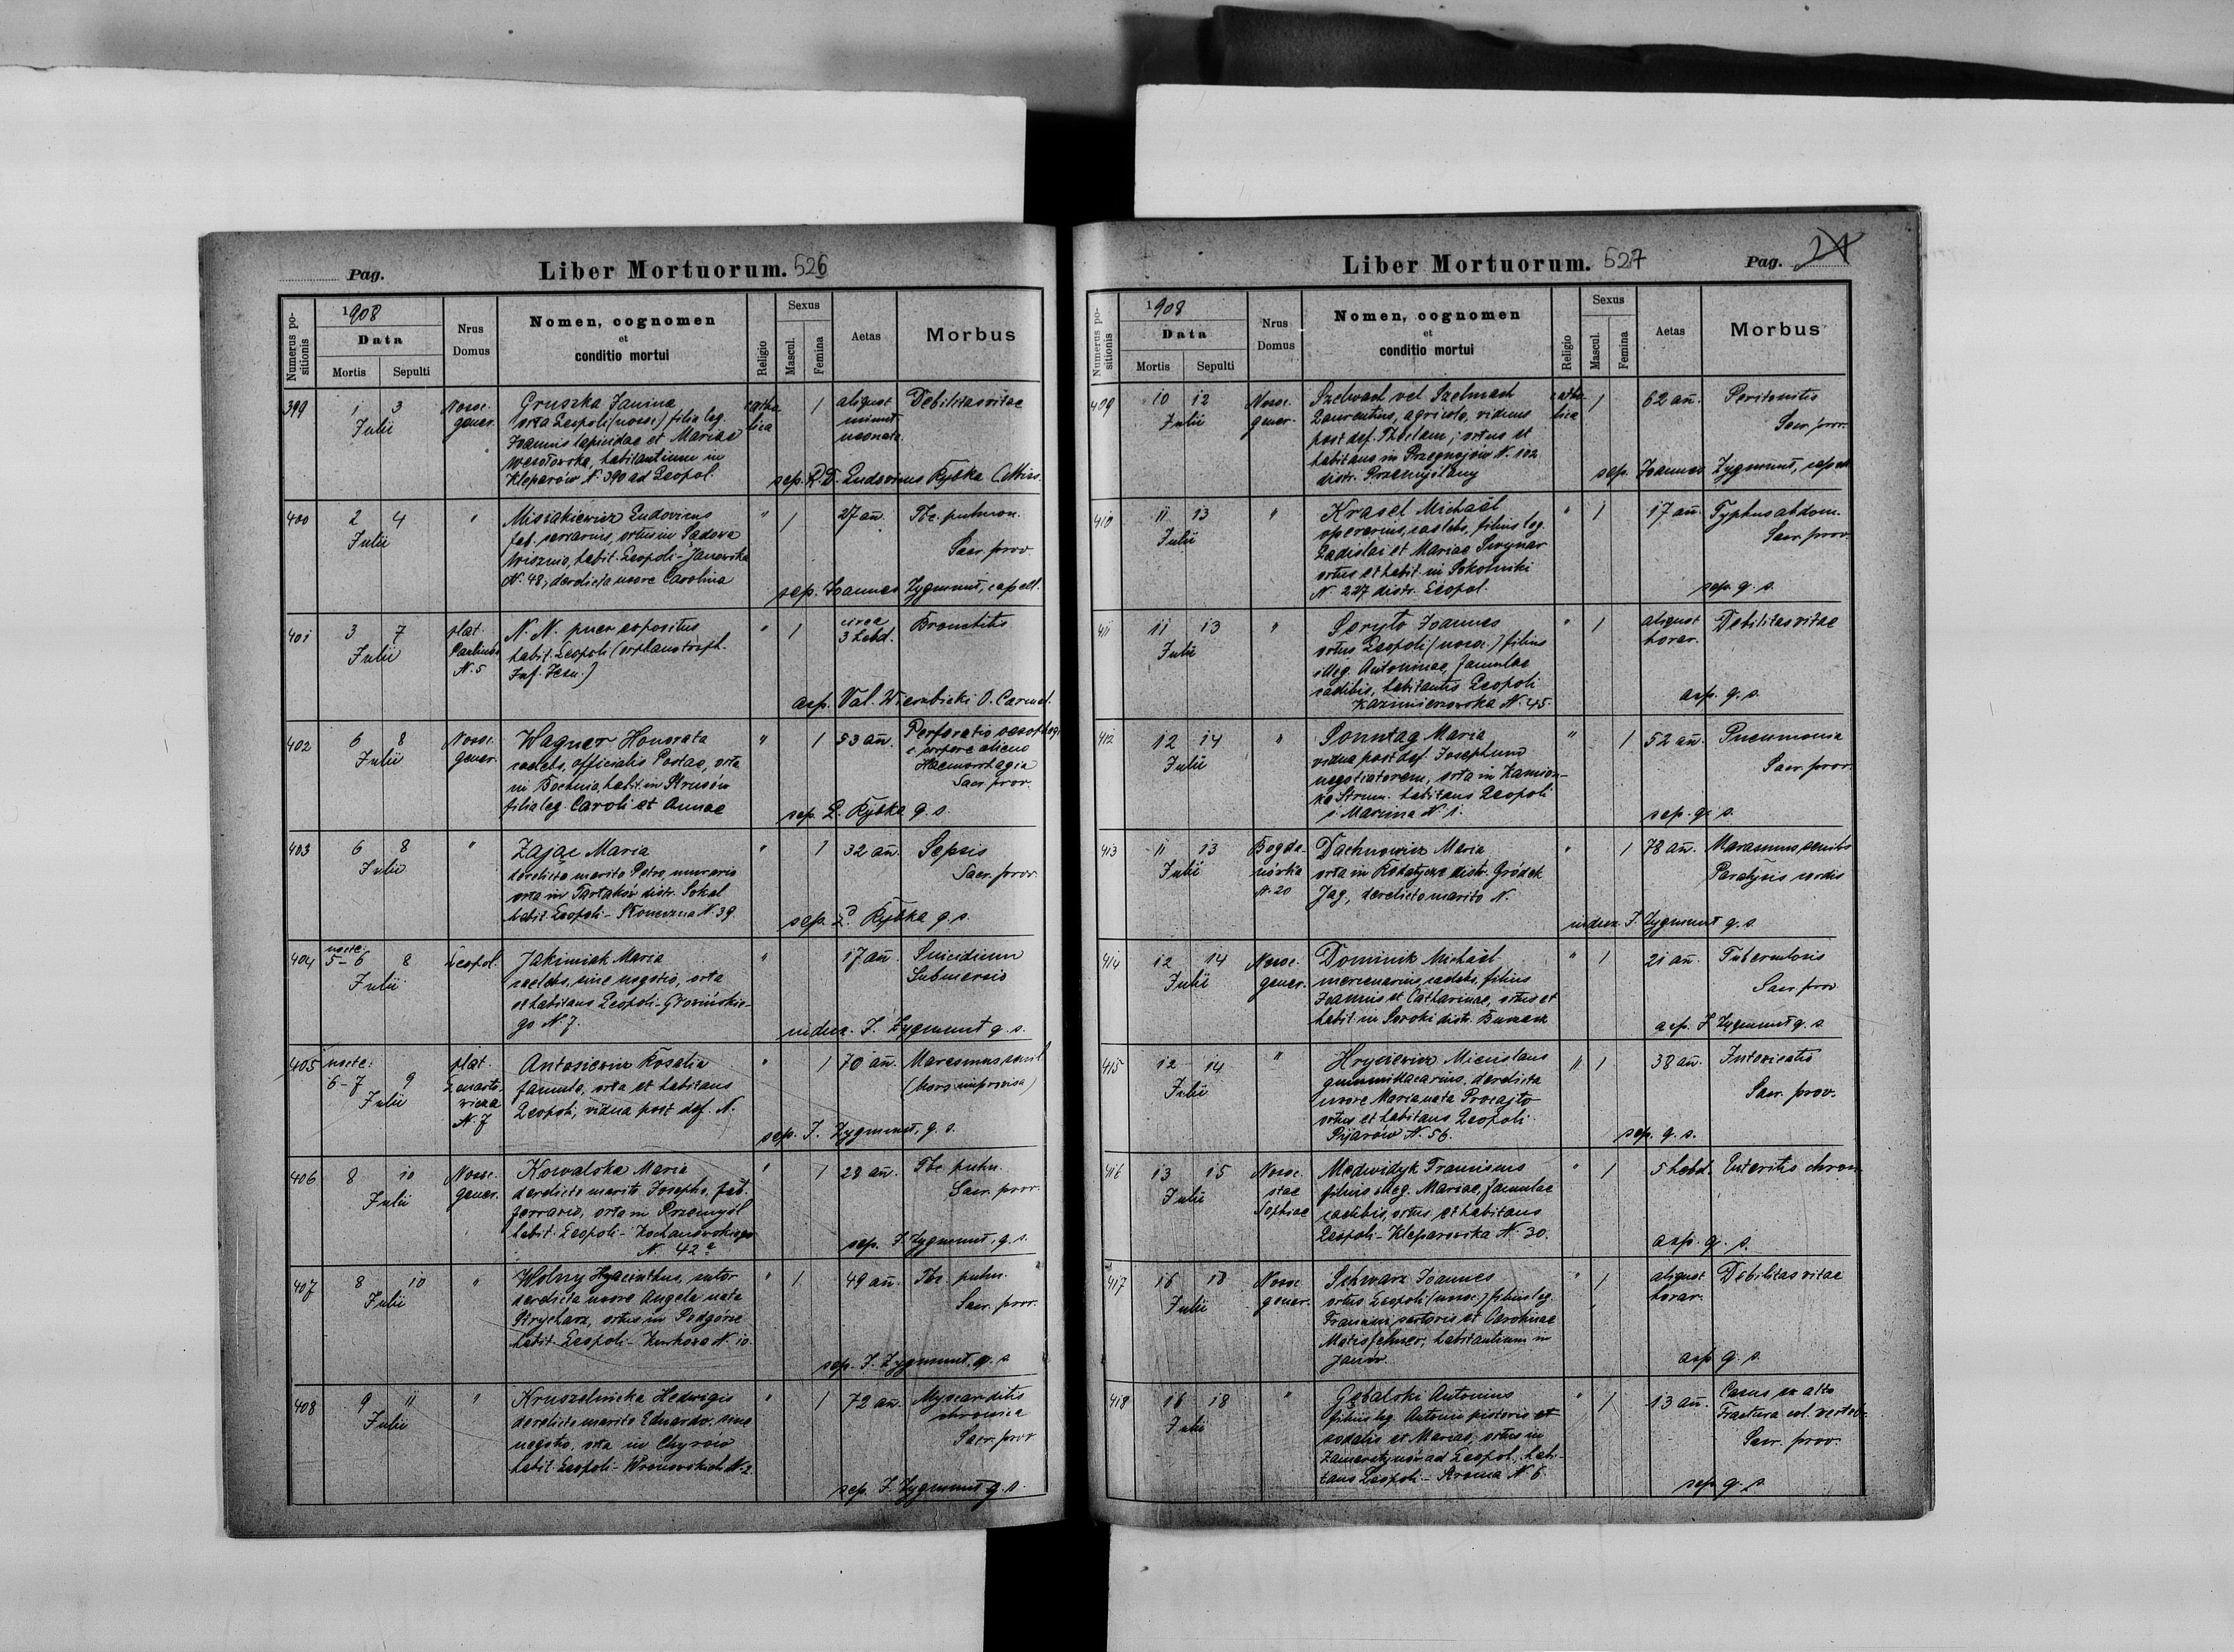 Pag.
Liber Mortuorum. 526
Numerus po-
sitionis
1908
Data
Mortis
Sepulti
Nrus
Domus
Nomen, cognomen
et
conditio mortui
Religio
Sexus
Mascul.
Femina
Aetas
Morbus
399
1 3
Julii
Nosoc.
gener.
Gruszka Janina
orta Leopoli (nosoc.) filia leg.
Joannis lapicidae et Mariae
Wesołowska, habitantium in
Kleparów N. 390 ad Leopol.
catho
lica
1
aliquot
minut
neonata
Debilitas vitae
sep. R. D. Ludovicus Rybka C. Miss.
400
2 4
Julii
"
Ludovicus
fab. serrarius, ortus in Sądowa
Wisznia, habit. Leopoli - Janowska
N. 48, derelicta uxore Carolina
"
1
27 an.
Tbc. pulmon.
Sacr. prov.
sep. Joannes Zygmunt, capell.
401
3 7
Julii
plat.
N. 5
N. N. puer expositus
habit. Leopoli (orphanotroph.
Inf. Jesu)
"
1
circa
3 hebd.
Bronchitis
asp. Val. Wierzbicki O. Carmel.
402
6 8
Julii
Nosoc.
gener.
Wagner Honorata
caelebs, officialis Postae, orta
in Bochnia, habit. in Strusów
filia leg. Caroli et Annae
"
1
53 an.
Perforatio oesophagi
e corpore alieno
Haemorrhagia
Sacr. prov.
sep. L. Rybka q. s.
403
6 8
Julii
"
Zając Maria
derelicto marito Petro, murario
orta in Tartaków distr. Sokal
habit. Leopoli - Słoneczna N. 39
"
1
32 an.
Sepsis
Sacr. prov.
sep. L. Rybka q. s.
404
nocte:
5-6 8
Julii
Leopol.
Jakimiak Maria
caelebs, sine negotio, orta
et habitans Leopoli -
go N. 7.
"
17 an.
Suicidium
Submersio
J. Zygmunt q. s.
405
nocte:
6-7 9
Julii
plat.
N. 7
Rosalia
famula, orta et habitans
Leopoli, vidua post def. N.
"
1
70 an.
Marasmus senil
(Mors improvisa)
sep. J. Zygmunt, q. s.
406
8 10
Julii
Nosoc.
gener.
Kowalska Maria
derelicto marito Josepho, fab.
ferrario, orta in Przemyśl
habit. Leopoli - Kochanowskiego
N. 42a
"
1
28 an.
Tbc. pulm.
Sacr. prov.
sep. J. Zygmunt, q. s.
407
8 10
Julii
"
Wolny Hyacinthus, sutor
derelicta uxore Angela nata
Strycharz, ortus in Podgórze
habit. Leopoli - Kurkowa N. 10
"
1
49 an.
Tbc. pulm.
Sacr. prov.
sep. J. Zygmunt, q. s.
408
9 11
Julii
"
Kruszelnicka Hedwigis
derelicto marito Eduardo, sine
negotio, orta in Chyrów
habit. Leopoli - Wronowskich N. 2
"
1
72 an.
Myocarditis
chronica
Sacr. prov.
sep. J. Zygmunt q. s.
Liber Mortuorum. 527
Pag. 24
Numerus po-
sitionis
1908
Data
Mortis
Sepulti
Nrus
Domus
Nomen, cognomen
et
conditio mortui
Religio
Sexus
Mascul.
Femina
Aetas
Morbus
409
10 12
Julii
Nosoc.
gener.
Szelwach vel Szelmach
Laurentius, agricola, viduus
post def. Theclam; ortus et
habitans in Przegnojów N. 102
distr. Przemyślany
catho
lica
1
62 an.
Peritonitis
Sacr. prov.
sep. Joannes Zygmunt, capell.
410
11 13
Julii
"
Krasel Michaël
operarius, caelebs, filius leg.
Ladislai et Mariae
ortus et habit. in Sokolniki
N. 227 distr. Leopol.
"
1
17 an.
Typhus abdom.
Sacr. prov.
sep. q. s.
411
11 13
Julii
"
Joannes
ortus Leopoli (nosoc.) filius
illeg. Antoninae, famulae
caelibis, habitantis Leopoli
Kazimierzowska N. 45
"
1
aliquot
horar.
Debilitas vitae
asp. q. s.
412
12 14
Julii
"
Sonntag Maria
vidua post def. Josephum
negotiatorem, orta in Kamion-
ka Strum. habitans Leopoli
s. Marcina N. 1.
"
1
52 an.
Pneumonia
Sacr. prov.
sep. q. s.
413
11 13
Julii
Bogda-
nówka
N. 20
Dachnowicz Maria
orta in Rodatycze distr. Gródek
Jag., derelicto marito N.
"
1
78 an.
Marasmus senilis
Paralysis cordis
J. Zygmunt q. s.
414
12 14
Julii
Nosoc.
gener.
Dominik Michaël
mercenarius, caelebs, filius
Joannis et Catharinae, ortus et
habit. in Soroki distr. Buczacz
"
1
21 an.
Tuberculosis
Sacr. prov.
asp. J. Zygmunt q. s.
415
12 14
Julii
"
Hryciewicz Miecislaus
derelicta
uxore Maria nata
ortus et habitans Leopoli
Pijarów N. 56.
"
1
38 an.
Intoxicatio
Sacr. prov.
sep. q. s.
416
13 15
Julii
Nosoc.
stae
Sophiae
Medwidyk Franciscus
filius illeg. Mariae, famulae
caelibis, ortus et habitans
Leopoli - Kleparowska N. 30.
"
1
5 hebd.
Enteritis chron
asp. q. s.
417
16 18
Julii
Nosoc.
gener.
Schwarz Joannes
ortus Leopoli (nosoc.) filius leg.
Francisci sartoris et Carolinae
habitantium in
Janów.
"
1
aliquot
horar.
Debilitas vitae
asp. q. s.
418
16 18
Julii
"
Gębalski Antonius
filius leg. Antonii pistoris et
sodalis et Mariae, ortus in
Zamarstynów ad Leopol., habi-
tans Leopoli - Stroma N. 6.
"
1
13 an.
Casus ex alto
Fractura col. verteb.
Sacr. prov.
sep. q. s.